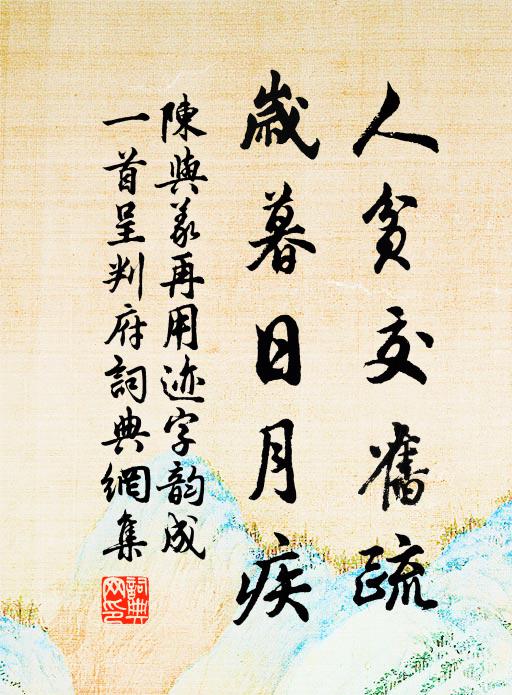 人貧交舊疏
歲暮日月疾
陳與義再用迹字韵成
一首呈判府詞典網集
詞典網印